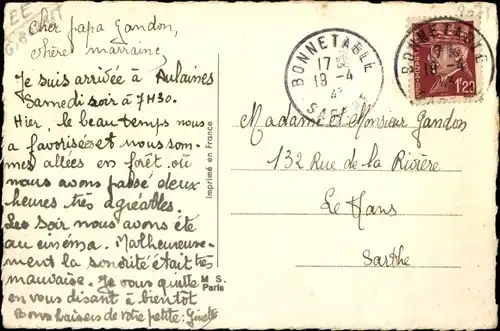 Cher papa Gandon,
chère marraine,
Je suis arrivée à Aulaines
Samedi soir à 7H30.
Hier, le beau temps nous
a favorisées et nous som-
mes allées en forêt où
nous avons passé deux
heures très agréables.
Le soir nous avons été
au cinéma. Malheureuse-
ment la sonorité était très
mauvaise. Je vous quitte
en vous disant à bientôt
Bons baisers de votre petite: Ginette
Imprimé en France
M S.
Paris
BONNETABLE
17 H
19-4
SARTHE
BONNETABLE
1F20
Madame et Monsieur Gandon
132 Rue de la Rivière
Le Mans
Sarthe